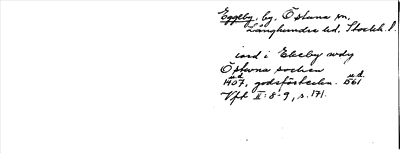 Eggeby, by, Östuna sn,
Långhundra hd, Stockh. l.
jord i Ekeby wdy
Östwna sochen
u.å. u.å.
1407, godsförteckn. B61
Vfr II:8-9, s. 171.